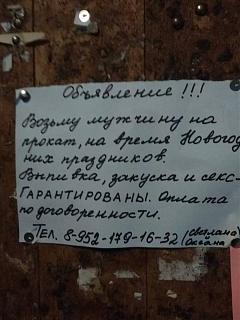 Объявление !!!
Возьму мужчину на
прокат, на время Новогод
них праздников.
Выпивка, закуска и секс-
ГАРАНТИРОВАНЫ. Оплата
по договоренности.
Тел. 8-952-179-16-32 / Светлана
/ Оксана